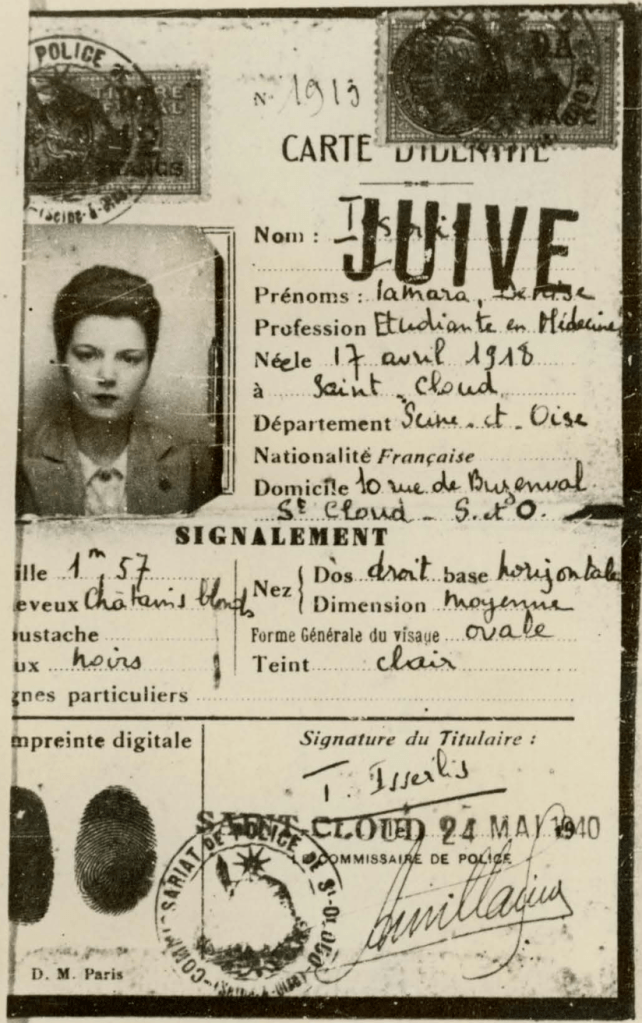 POLICE DE
FRANCS
(SEINE-&-OISE)
N° 1913
CARTE D'IDENTITÉ
JUIVE
Nom : Isserlis
Prénoms : Tamara, Denise
Profession Etudiante en Médecine
Née le 17 avril 1918
à Saint-Cloud
Département Seine-et-Oise
Nationalité Française
Domicile 10 rue de Buzenval
St Cloud - S. et O.
SIGNALEMENT
ille 1m,57
eveux Châtains blonds
oustache
ux noirs
gnes particuliers
Nez { Dos droit base horizontale
Dimension moyenne
Forme Générale du visage ovale
Teint clair
mpreinte digitale
Signature du Titulaire :
T. Isserlis
SAINT-CLOUD 24 MAI 1940
LE COMMISSAIRE DE POLICE
COMMISSARIAT DE POLICE DE St-CLOUD
(SEINE-&-OISE)
D. M. Paris